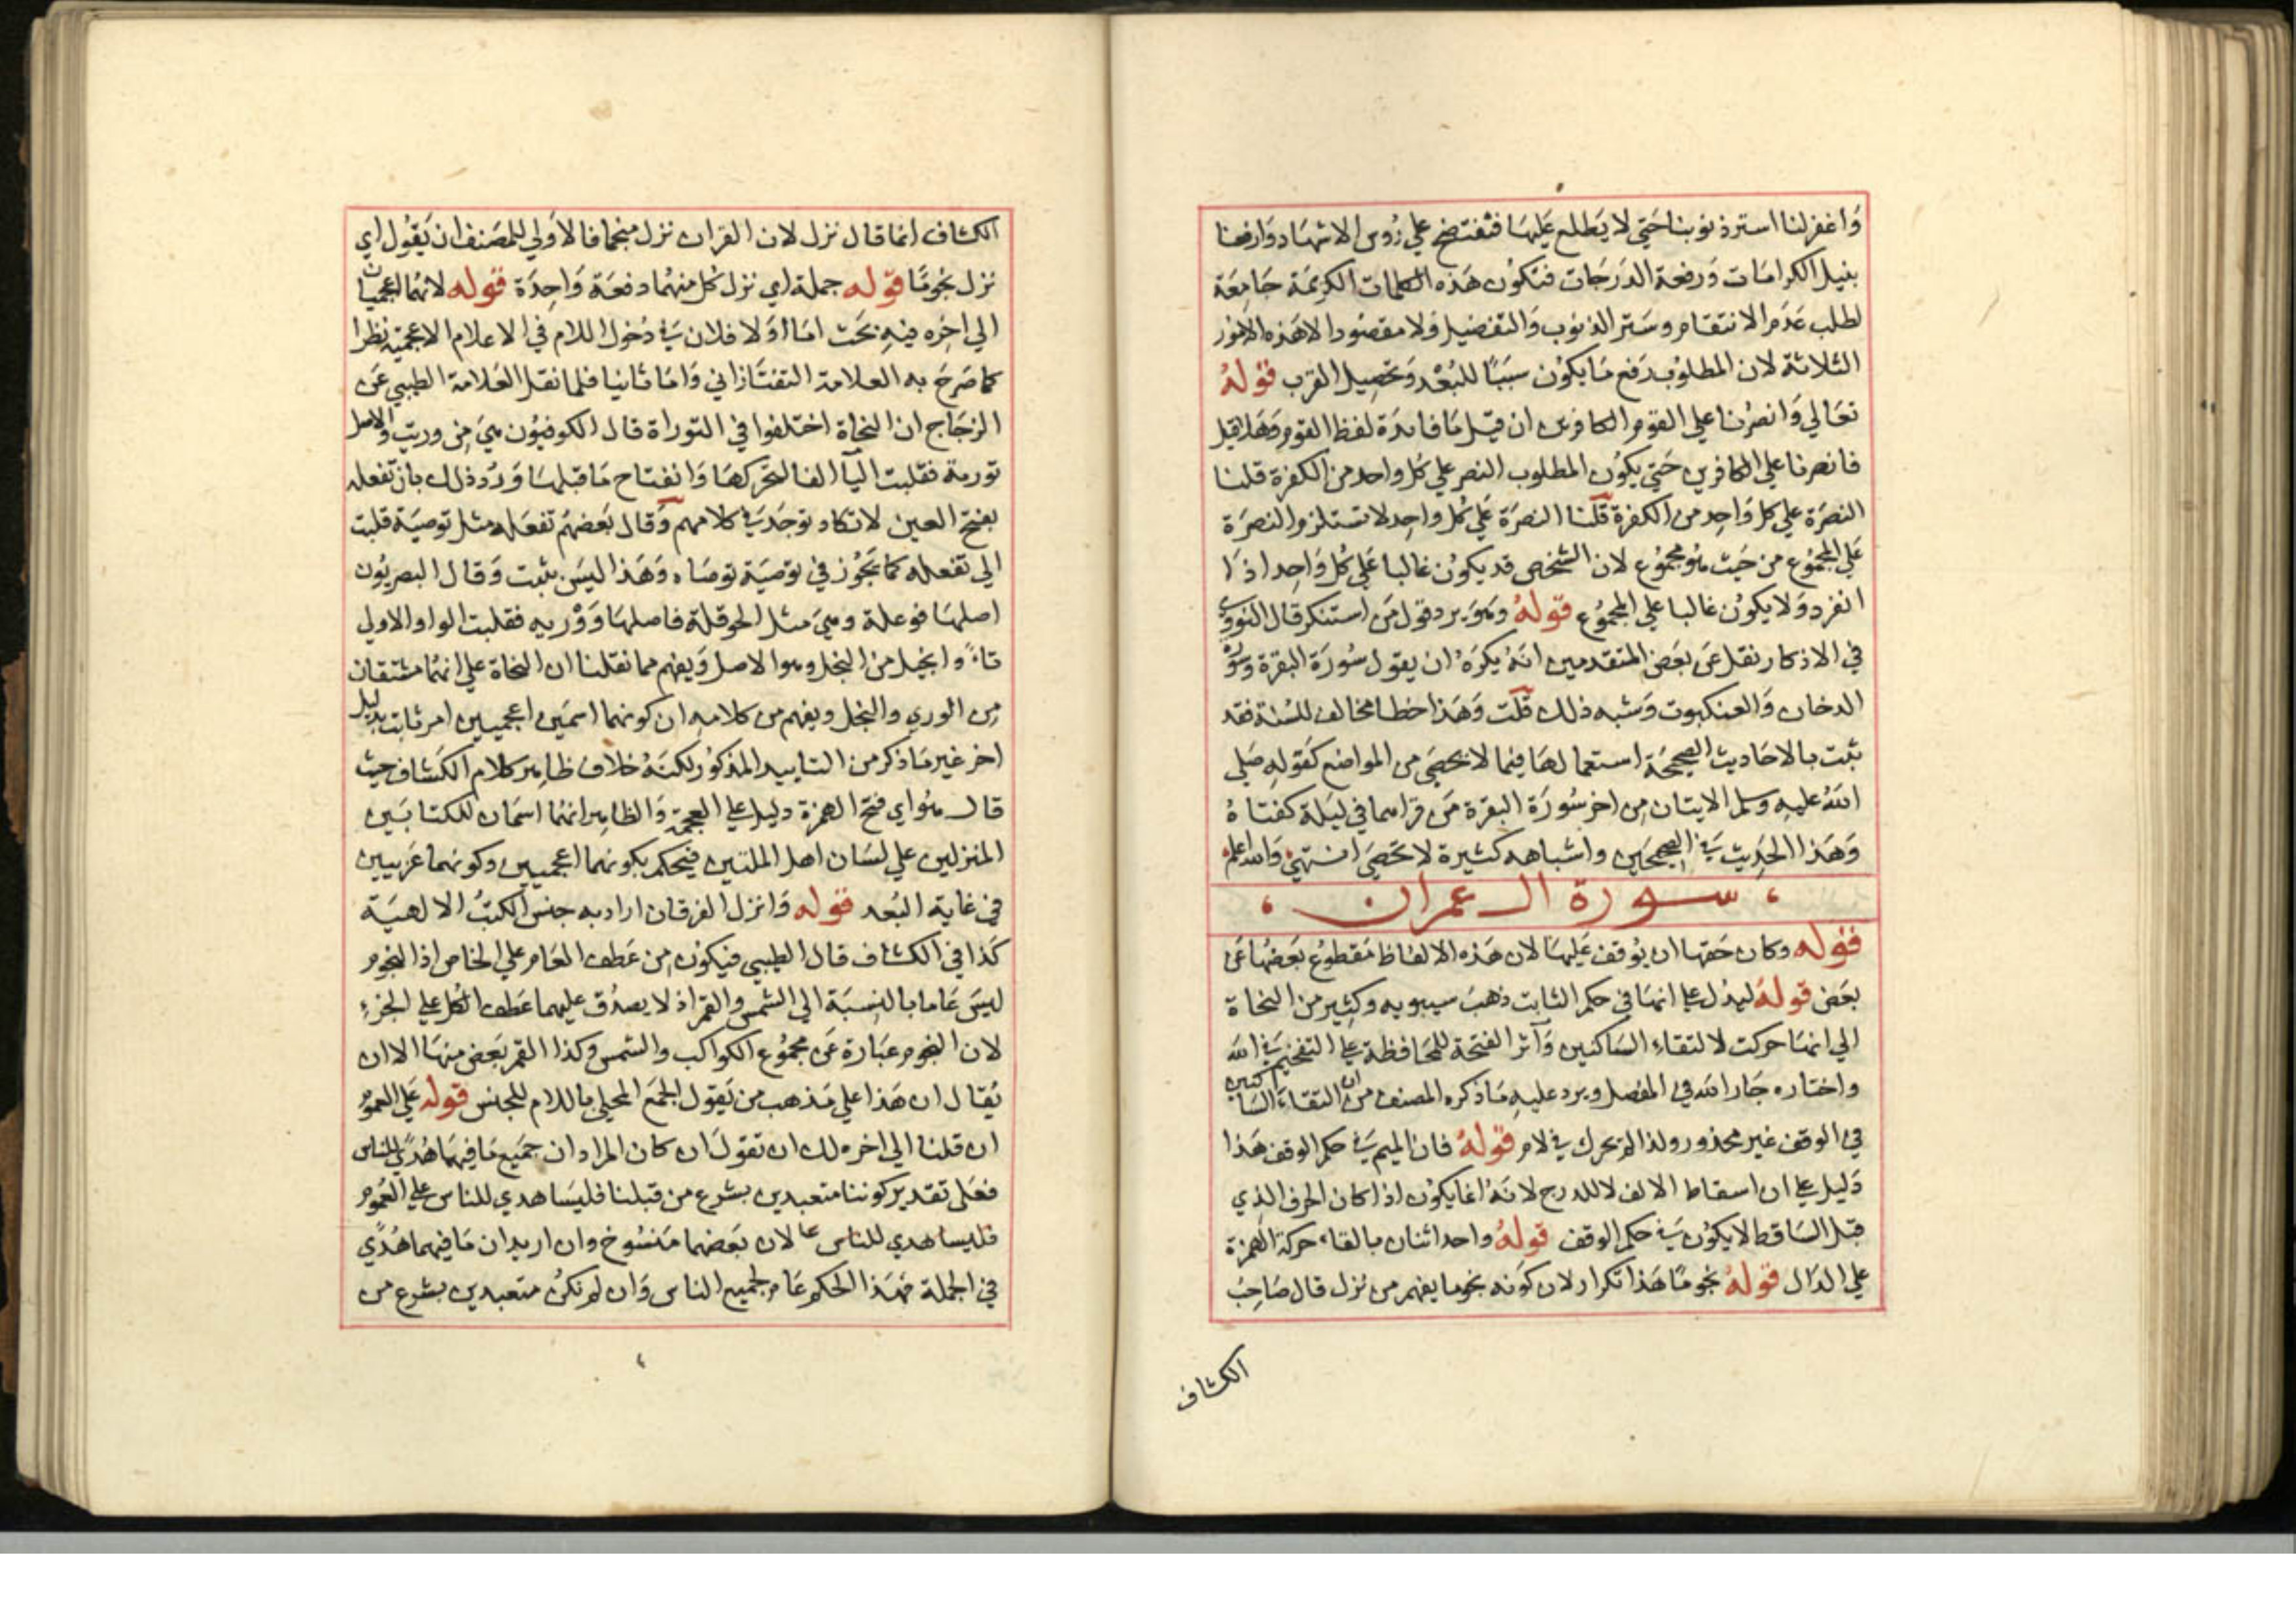 وَاغفرلنا استر ذنوبنا حَتي لا يَطلع عَليهَا فنفتضح علي رُوس الاشهَاد وَارفعنا
بنيل الكرامَات وَرفعة الدَرجَات فتكوُن هَذه الكلمات الكريمَة جَامِعَة
لطلب عَدَم الانتقام وسَتر الذنوب وَالتفضيل وَلا مقصُود الا هَذه الامُور
الثلاثة لان المطلوُب رَفع مَا يكوُن سبَبًا للبُعْد وَتحصيل القرب قوله
تعَالي وَانصُرنا علي القوم الكافرين ان قيل مَا فايدَة لفظ القوم وَهَلا قيل
فانصرنا علي الكافرين حَتي يكوُن المطلوب النصر علي كل واحد من الكفرة قلنا
النصَرة علي كل وَاحِد من الكفرة قلنا النصرَة عَلي كل واحِد لا تستلزم النصرَة
عَلي المجمُوع من حَيث هُو مجمُوع لان الشخص قد يكوُن غالبا عَلي كل وَاحِد اذَا
انفرد وَلا يكوُن غالبا علي المجموُع قوله وَهوَ يرد قول مَن استنكر قال النووي
في الاذكار نقل عَن بعَض المتقدمين انهُ يكرَه ان يقول سُورَة البقرة وسورة
الدخان وَالعنكبوت وَشبه ذلك قلت وَهَذا خطا مخالف للسُنة فقد
ثبت بالاحَاديث الصحيحَة استعمالهَا فيما لا يحصَي من المواضع كَقوله صَلي
اللهُ عليه وسلم الايتان مِن اخر سُورَة البقرة مَن قراهما في ليَلة كفتاهُ
وَهَذا الحَديث في الصحيحَين واشباهه كثيرة لا تحصَي انتهيٰ وَالله اعلم
سورة ال عمران
قوله وكان حَقها ان يوُقف عَليهَا لان هَذه الالفاظ مَقطوُع بعَضهُا عَن
بعَض قوله ليدُل علي انهَا في حكم الثابت ذهبَ سيبويه وكثِير من النحاة
الي انهَا حركت لالتقاءِ السَاكنين وَآثر الفتحَة للمحَافظة علي التفخيم في الله
واختاره جَار الله في المفصل ويرد عليهِ مَا ذكره المصنف من ان التقاءَ السَاكنين
في الوقف غير محذور ولذا لم يحرك في لام قوله فان الميم في حكم الوقف هَذا
دَليل علي ان اسقاط الالف لا للدرج لانهُ انما يكوُن اذا كان الحرف الذي
قبل السَاقط لا يكوُن في حكم الوقف قوله واحد اثنان بالقاء حركة الهمزة
علي الدَال قوله نجومًا هَذا تكرار لان كوَنه نجوما يفهم من نزل قال صَاحِبُ
الكشاف
الكشاف انما قال نزل لان القران نزل منجما فالاَولي للمصَنف ان يَقوُل اي
نزل نجومًا قوله جملة اي نزل كل منهُما دفعَة وَاحِدَة قوله لانهُما اعجميان
الي اخِره فيهِ بَحَث امَا اوَلا فلان في دُخول اللام في الاعلام الاعجميّة نظرا
كما صَرحَ به العلامة التفتَازاني وَامَا ثانيا فلما نقل العَلامَة الطيبي عَن
الزجَاج ان النحَاة اختلفوا في التوراة قال الكوفيوُن هيَ مِن وريت والاصل
تورية فقلبت اليَآ الفا لتحركهَا وَانفتاح مَا قبلهَا وَرُد ذلك بان تفعله
بفتح العين لا تكاد توجَد في كلامهم وَقال بعَضهُم تفعَله مثل توصيَة قلبت
الي تفعله كما يَجُوز في توصيَة توصَاه وَهَذا ليسَ بثبت وَقال البصريُون
اصلهَا فوعلة وهيَ مثل الحوقلة فاصلهَا وَوْريه فقلبت الواو الاولي
تاءً وانجيل من النجل وهو الاصل وَيفهم مما نقلنا ان النحاة علي انهُما مشتقان
مِن الوري والنجل ويفهم من كلامهِ ان كونهما اسمَين اعجميين امر ثابت بدليل
اخر غير مَا ذكر من التاييد المذكوُر لكنهُ خلاف ظاهر كلام الكَشاف حيث
قال هوُ اي فتح الهمزة دليل علي العجمَة وَالظاهِر انهُما اسمَان للكتابَين
المنزلين علي لسَان اهل الملتين فيحكم بكونهما اعجميين وكونهما عَربيين
في غاية البُعد قوله وَانزل الفرقان اراد به جنس الكتبُ الالهيَة
كَذا في الكشاف قال الطيبي فيكوُن مِن عَطف العَام علي الخاص اذ النجوم
ليسَ عَاما بالنِسبَة الي الشمس والقمر اذ لا يصدُق عليهما عَطف الكل علي الجزءِ
لان النجوم عبَارة عَن مجمُوع الكواكب والشمس وكذا القمر بعَض منهَا الا ان
يُقال ان هَذا علي مَذهب من يَقول الجمَع المحلي باللام للجنس قوله عَلي العموُم
ان قلنا الي اخره لك ان تقولَ ان كان المراد ان جمَيع مَا فيهَما هُدًي للناس
فعَلى تقدير كوننا متعبدين بشرع من قبلنا فليسَا هدي للناس علي العُموُم
فليسا هدي للناس عا لان بعَضهما مَنسُوخ وان اريد ان مَا فيهما هُدًي
في الجملة فهَذا الحكم عَام لجميع الناس وَان لم نكنُ متعبدين بشرع من